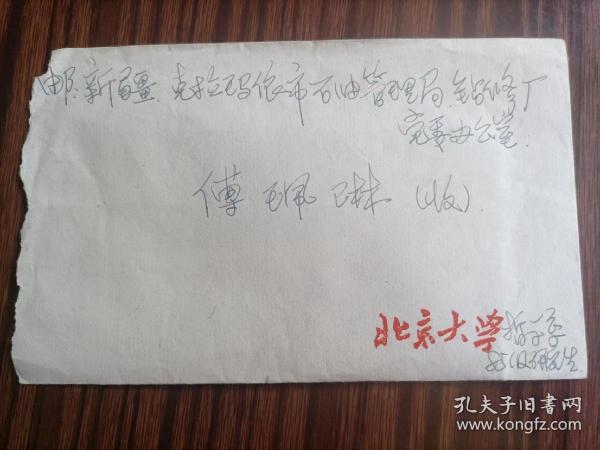 邮:新疆 克拉玛依市石油管理局钻修厂
党委办公室
傅珮琳（收）
北京大学 哲学系
85级研究生
孔夫子旧书网
www.kongfz.com